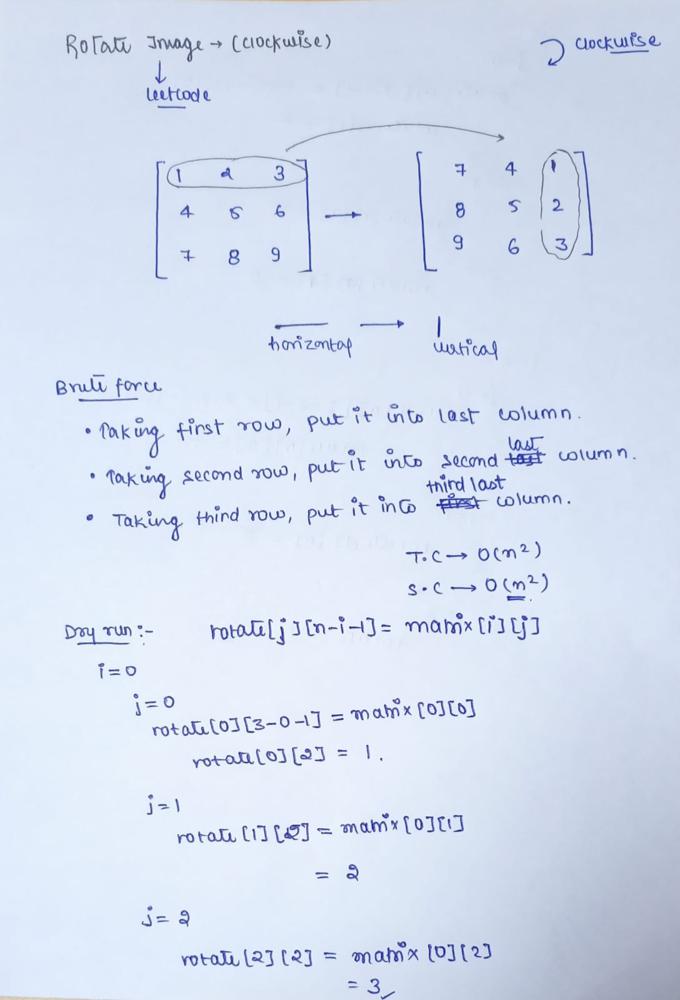 Rotate Image → (clockwise)
clockwise
↓
leetcode
1 2 3
4 5 6
7 8 9
→
7 4 1
8 5 2
9 6 3
horizontal → vertical
Brute force
• Taking first row, put it into last column.
• Taking second row, put it into second last column.
• Taking third row, put it into third last column.
T.C → O(n²)
S.C → O(n²)
Dry run :- rotate[j][n-i-1] = matrix[i][j]
i=0
j=0
rotate[0][3-0-1] = matrix[0][0]
rotate[0][2] = 1.
j=1
rotate[1][2] = matrix[0][1]
= 2
j=2
rotate[2][2] = matrix[0][2]
= 3